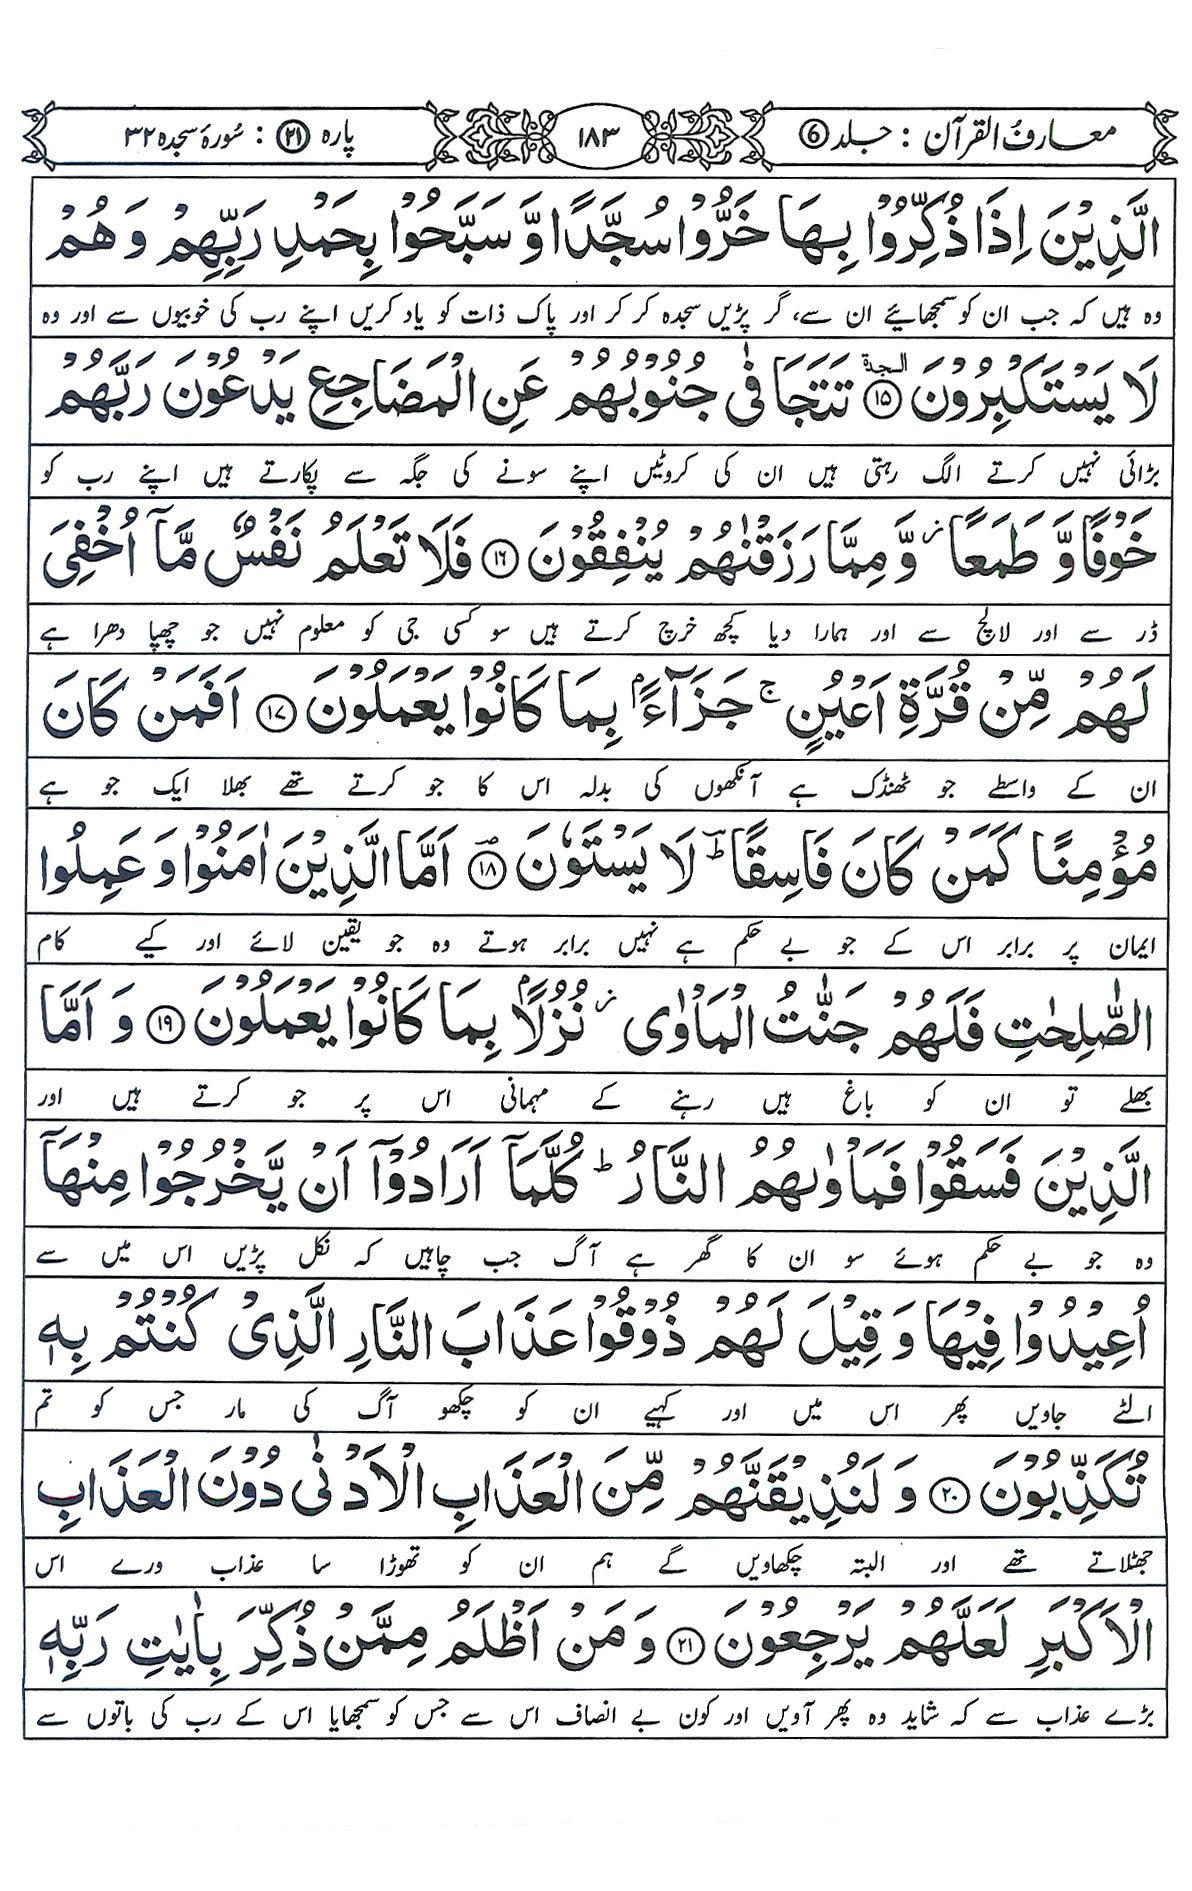 معارف القرآن : جلد ⑥ ١٨٣ پاره ㉑ : سُورۂ سجدہ ٣٢
الَّذِيْنَ اِذَا ذُكِّرُوْا بِهَا خَرُّوْا سُجَّدًا وَّ سَبَّحُوْا بِحَمْدِ رَبِّهِمْ وَ هُمْ
وہ ہیں کہ جب ان کو سمجھائیے ان سے، گر پڑیں سجدہ کر کر اور پاک ذات کو یاد کریں اپنے رب کی خوبیوں سے اور وہ
لَا يَسْتَكْبِرُوْنَ ۩ ⑮ تَتَجَافٰى جُنُوْبُهُمْ عَنِ الْمَضَاجِعِ يَدْعُوْنَ رَبَّهُمْ
بڑائی نہیں کرتے الگ رہتی ہیں ان کی کروٹیں اپنے سونے کی جگہ سے پکارتے ہیں اپنے رب کو
خَوْفًا وَّ طَمَعًا ز وَّ مِمَّا رَزَقْنٰهُمْ يُنْفِقُوْنَ ⑯ فَلَا تَعْلَمُ نَفْسٌ مَّاۤ اُخْفِيَ
ڈر سے اور لالچ سے اور ہمارا دیا کچھ خرچ کرتے ہیں سو کسی جی کو معلوم نہیں جو چھپا دھرا ہے
لَهُمْ مِّنْ قُرَّةِ اَعْيُنٍ ج جَزَآءًۢ بِمَا كَانُوْا يَعْمَلُوْنَ ⑰ اَفَمَنْ كَانَ
ان کے واسطے جو ٹھنڈک ہے آنکھوں کی بدلہ اس کا جو کرتے تھے بھلا ایک جو ہے
مُؤْمِنًا كَمَنْ كَانَ فَاسِقًا ط لَا يَسْتَوٗنَ ⑱ اَمَّا الَّذِيْنَ اٰمَنُوْا وَ عَمِلُوا
ایمان پر برابر اس کے جو بے حکم ہے نہیں برابر ہوتے وہ جو یقین لائے اور کیے کام
الصّٰلِحٰتِ فَلَهُمْ جَنّٰتُ الْمَاْوٰى ز نُزُلًاۢ بِمَا كَانُوْا يَعْمَلُوْنَ ⑲ وَ اَمَّا
بھلے تو ان کو باغ ہیں رہنے کے مہمانی اس پر جو کرتے ہیں اور
الَّذِيْنَ فَسَقُوْا فَمَاْوٰىهُمُ النَّارُ ط كُلَّمَاۤ اَرَادُوْۤا اَنْ يَّخْرُجُوْا مِنْهَاۤ
وہ جو بے حکم ہوئے سو ان کا گھر ہے آگ جب چاہیں کہ نکل پڑیں اس میں سے
اُعِيْدُوْا فِيْهَا وَ قِيْلَ لَهُمْ ذُوْقُوْا عَذَابَ النَّارِ الَّذِيْ كُنْتُمْ بِهٖ
الٹے جاویں پھر اس میں اور کہیے ان کو چکھو آگ کی مار جس کو تم
تُكَذِّبُوْنَ ⑳ وَ لَنُذِيْقَنَّهُمْ مِّنَ الْعَذَابِ الْاَدْنٰى دُوْنَ الْعَذَابِ
جھٹلاتے تھے اور البتہ چکھاویں گے ہم ان کو تھوڑا سا عذاب ورے اس
الْاَكْبَرِ لَعَلَّهُمْ يَرْجِعُوْنَ ㉑ وَ مَنْ اَظْلَمُ مِمَّنْ ذُكِّرَ بِاٰيٰتِ رَبِّهٖ
بڑے عذاب سے کہ شاید وہ پھر آویں اور کون بے انصاف اس سے جس کو سمجھایا اس کے رب کی باتوں سے